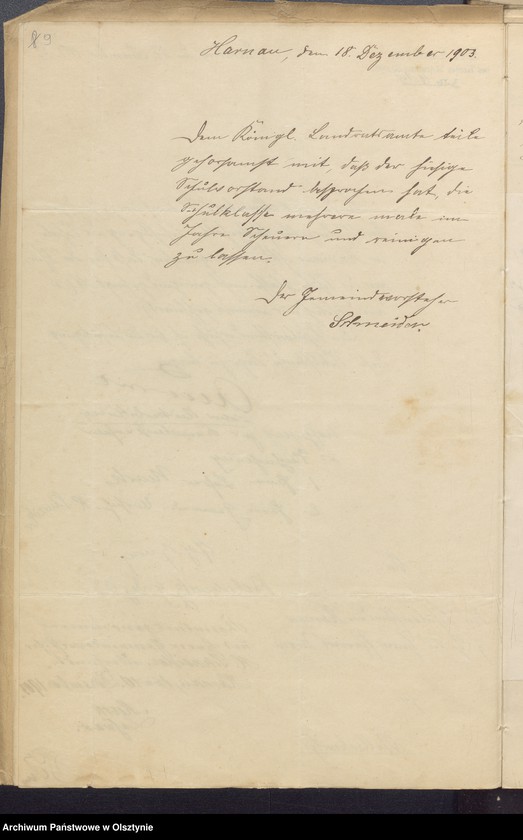 89
Harnau, den 18. Dezember 1903.
Dem Königl. Landratsamte teile
gehorsamst mit, daß der hiesige
Schulvorstand besprochen hat, die
Schulklasse mehrere male im
Jahre scheuern und reinigen
zu lassen.
Der Gemeindevorsteher
Schneider.
Archiwum Państwowe w Olsztynie